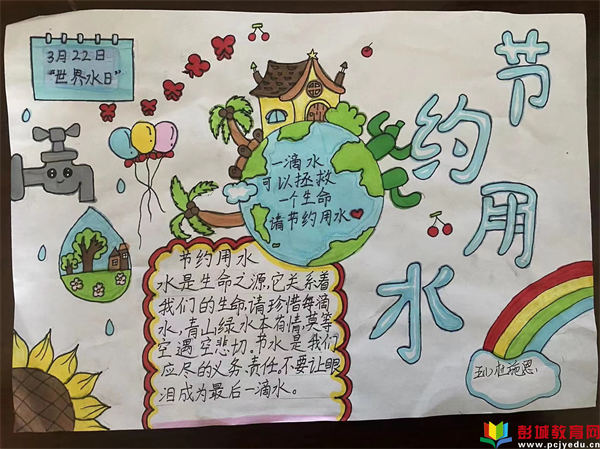 3月22日
“世界水日”
节约用水
一滴水
可以拯救
一个生命
请节约用水
节约用水
水是生命之源,它关系着
我们的生命,请珍惜每滴
水,青山绿水本有情,莫等
空遇空悲切。节水是我们
应尽的义务、责任,不要让眼
泪成为最后一滴水。
彭城教育网
www.pcjyedu.cn